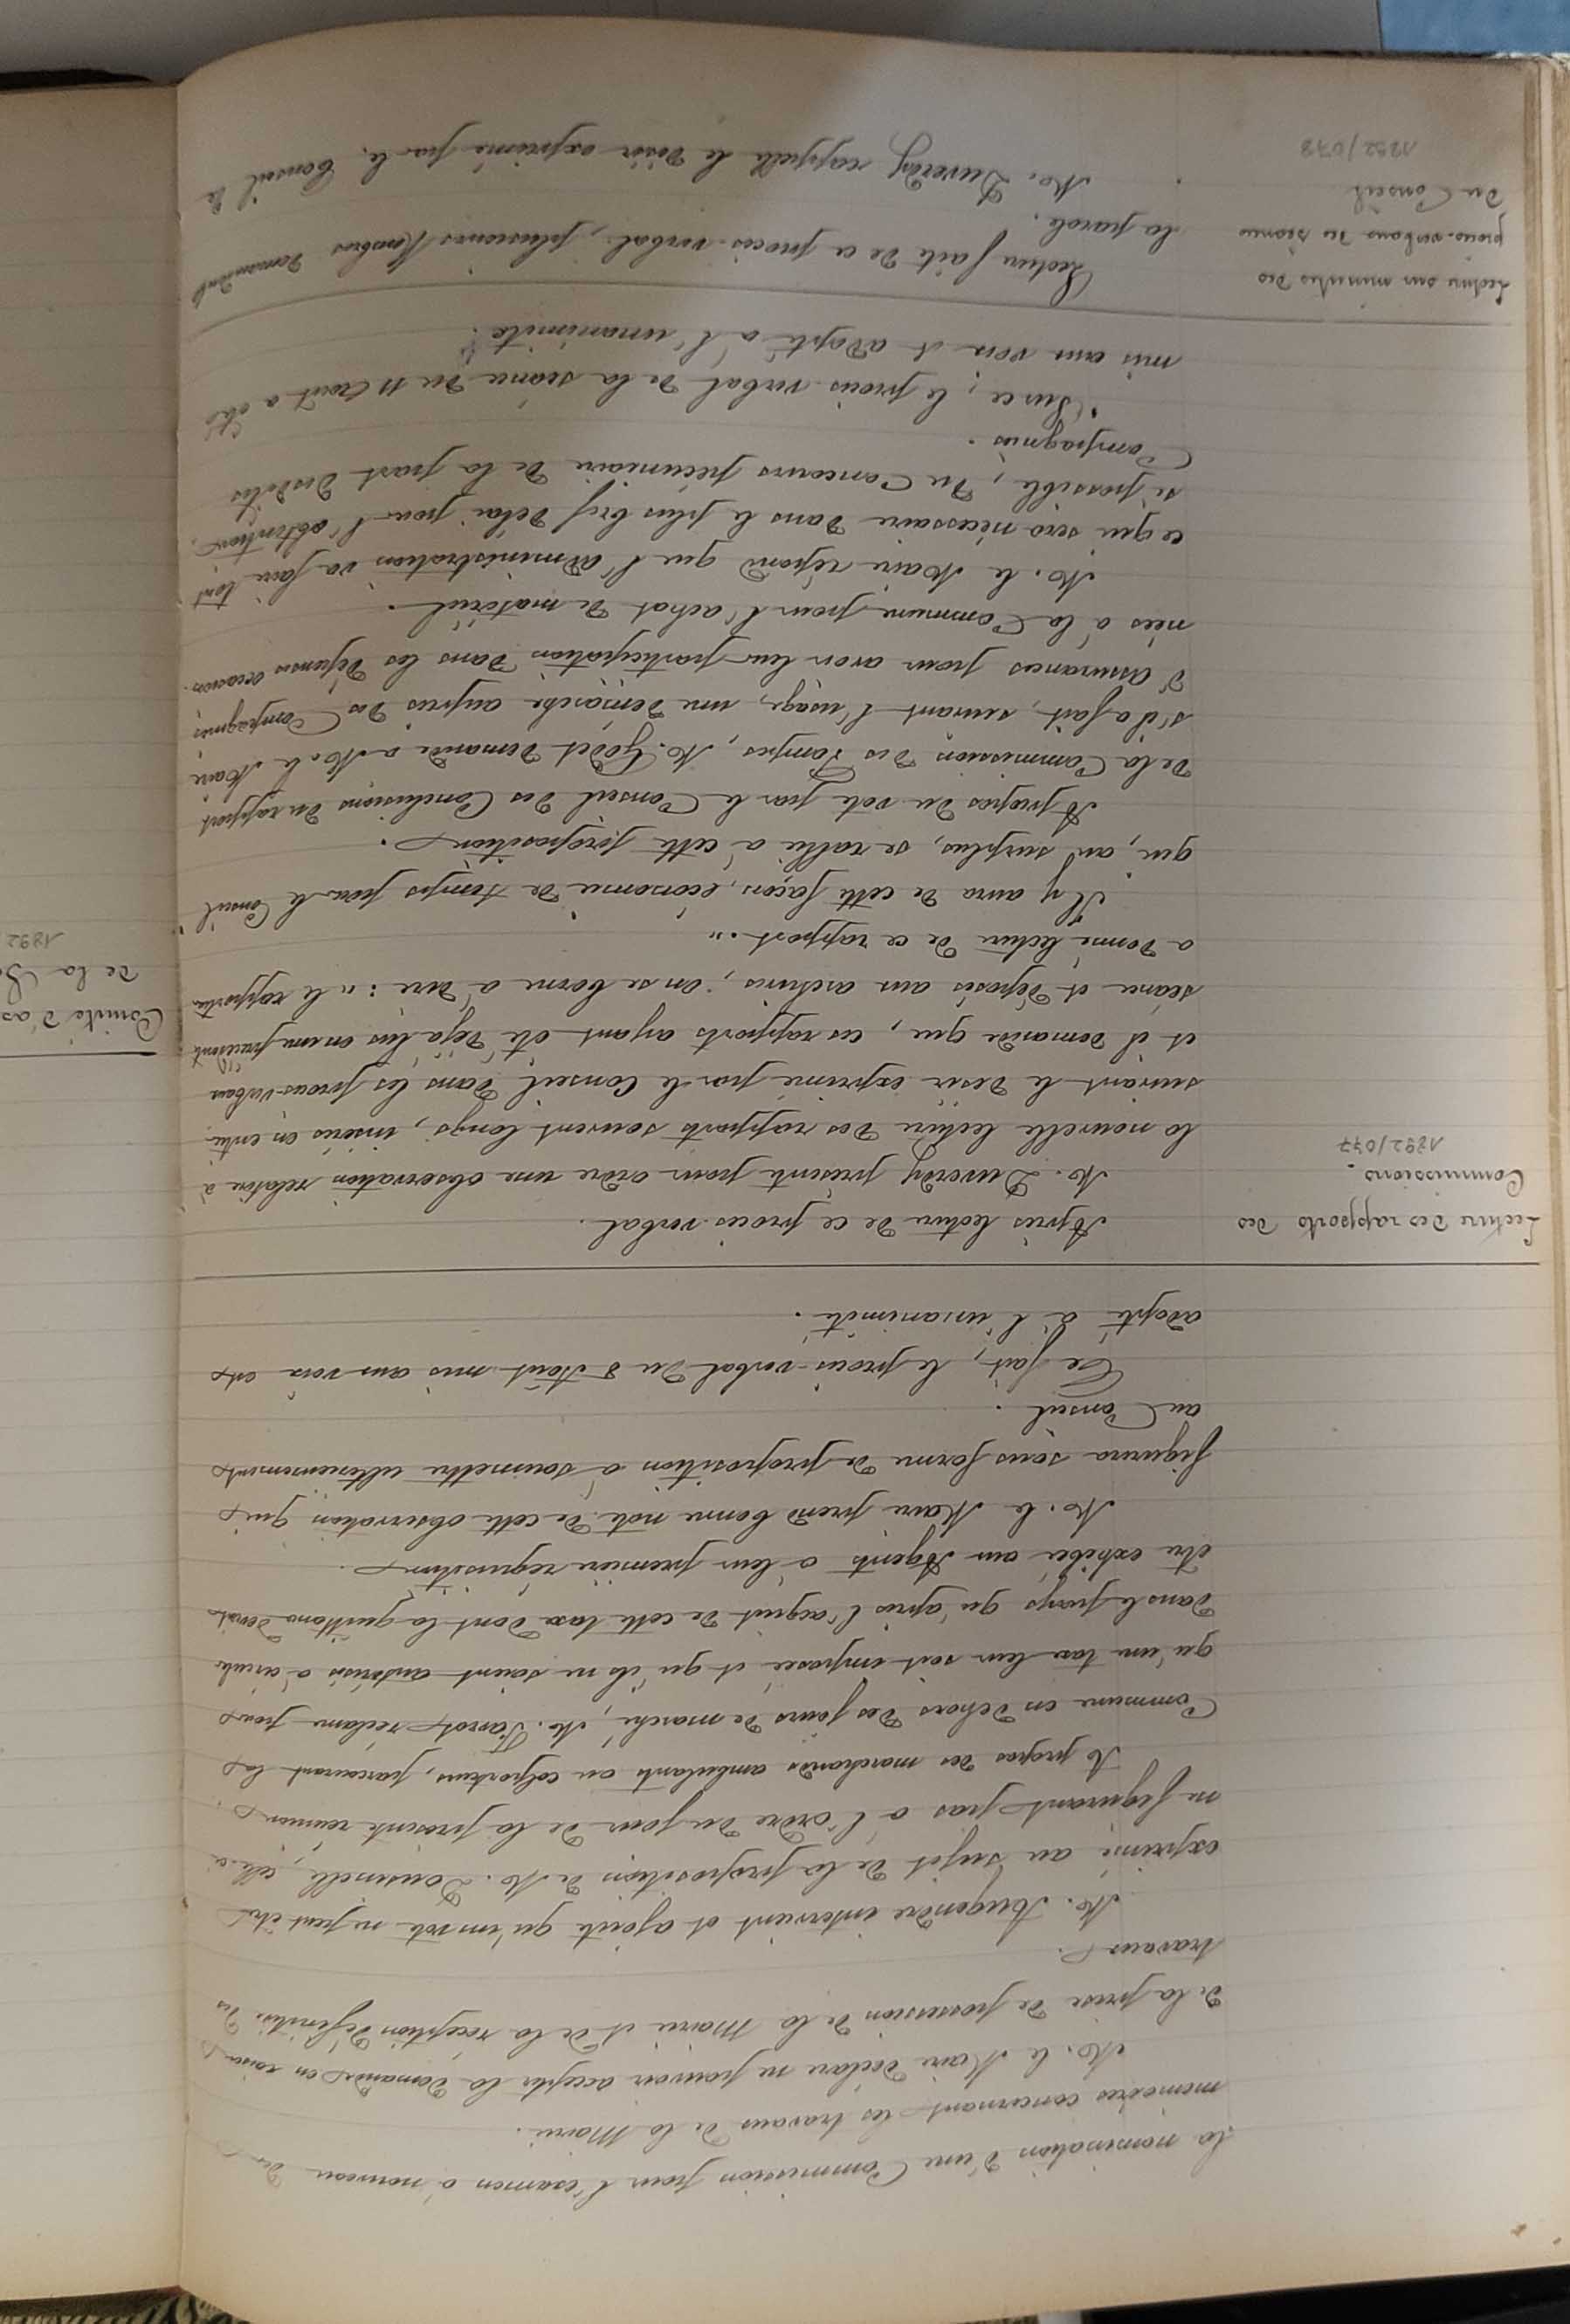 la nomination d'une Commission pour l'examen à nouveau des
mémoires concernant les travaux de la Mairie.
M. le Maire déclare ne pouvoir accepter la demande en raison
de la prise de possession de la Mairie et de la réception définitive des
travaux.
M. Augendre intervient et ajoute qu'un vote ne peut être
exprimé au sujet de la proposition de M. Dousinelle, celle-ci
ne figurant pas à l'ordre du jour de la présente réunion.
A propos des marchands ambulants ou colporteurs, parcourant la
Commune en dehors des jours de marché, M. Parot réclame pour
qu'une taxe leur soit imposée et qu'ils ne soient autorisés à circuler
dans le pays qu'après l'acquit de cette taxe dont la quittance devra
être exhibée aux Agents à leur première réquisition.
M. le Maire prend bonne note de cette observation qui
figurera sous forme de proposition à soumettre ultérieurement
au Conseil.
Ce fait, le procès-verbal du 8 Août mis aux voix est
adopté à l'unanimité.
Lecture des rapports des
Commissions.
1892/077
Après lecture de ce procès-verbal.
M. Duverdy présente pour ordre une observation relative à
la nouvelle lecture des rapports souvent longs, insérés en entier
suivant le désir exprimé par le Conseil dans les procès-verbaux
et il demande que, ces rapports ayant été déjà lus en une précédente
séance et déposés aux archives, on se borne à dire : "le rapporteur
a donné lecture de ce rapport."
Il y aura de cette façon, économie de temps pour le Conseil
qui, au surplus, se rallie à cette proposition.
A propos du vote par le Conseil des Conclusions du rapport
de la Commission des Pompes, M. Godet demande à M. le Maire
s'il a fait, suivant l'usage, une démarche auprès des Compagnies
d'assurances pour avoir leur participation dans les dépenses occasion-
nées à la Commune pour l'achat de matériel.
M. le Maire répond que l'administration va faire tout
ce qui sera nécessaire dans le plus bref délai pour l'obtention,
si possible, du Concours pécuniaire de la part desdites
Compagnies.
Sur ce, le procès-verbal de la séance du 11 Août a été
mis aux voix et adopté à l'unanimité.
Lecture sur minutes des
procès-verbaux des séances
du Conseil
1892/078
Lecture faite de ce procès-verbal, plusieurs Membres demandent
la parole.
M. Duverdy rappelle le désir exprimé par le Conseil de
Comité d'as
de la
1892